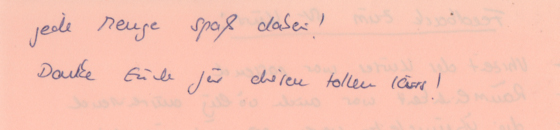 jede Menge Spaß dabei!
Danke Euch für diesen tollen Kurs!